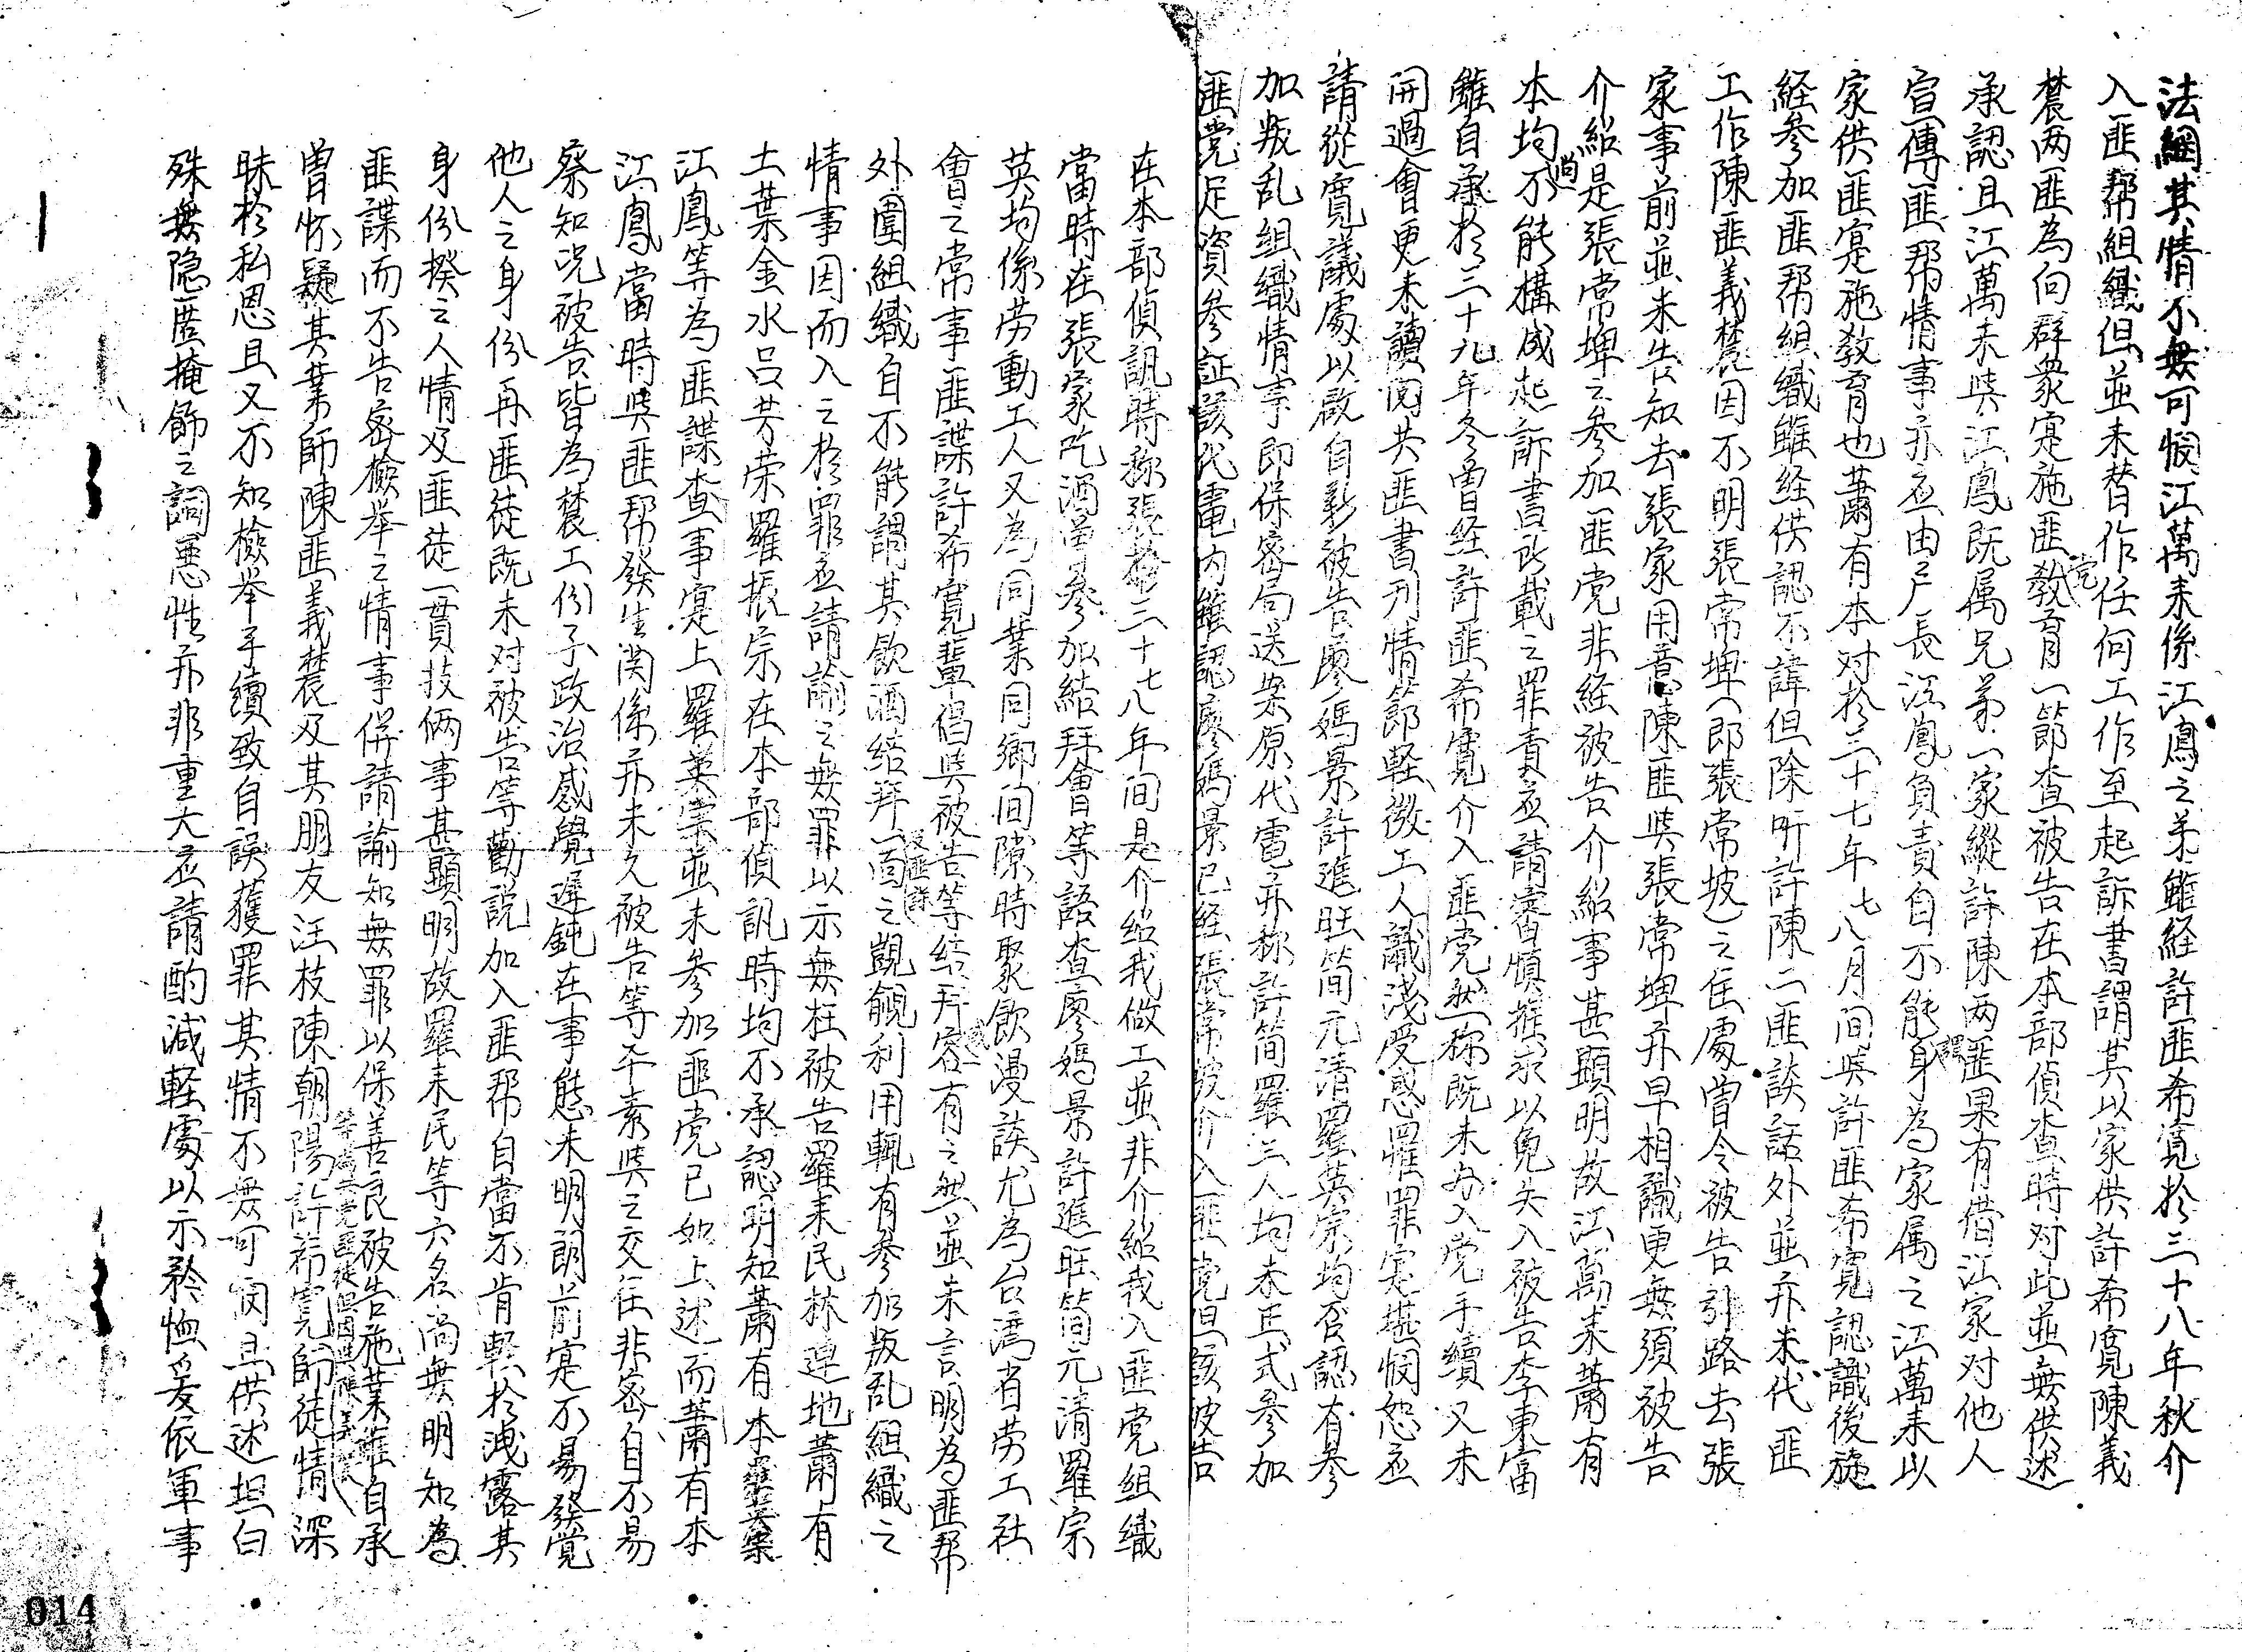 法網其情不無可憫江萬來係江鳳之弟雖経許匪希寬於三十八年秋介
入匪帮組織但並未替作任何工作至起訴書謂其以家供許希寬陳義
農两匪為向群衆寔施匪党教育一節查被告在本部偵查時对此並無供述
承認且江萬來與江鳳既属兄弟一家縱許陳两匪果有借江家对他人
宣傳匪帮情事亦应由戶長江鳳負責自不能謂身為家属之江萬來以
家供匪寔施教育也蕭有本对於三十七年七八月间與許匪希寬認識後旋
経參加匪帮組織雖经供認不諱但除听許陳二匪談話外並亦未代匪
工作陳匪義農因不明張常埤(即張常坡)之住處曾令被告引路去張
家事前並未告知去張家用意陳匪與張常埤亦早相識更無須被告
介紹是張常埤之參加匪党非経被告介紹事甚顯明故江萬來蕭有
本均尚不能構成起訴書所載之罪責应請審慎推求以免失入被告李東富
雖自承於三十九年冬曾经許匪希寬介入匪党然称既未为入党手續又未
開過會更未讀閱共匪書刊情節輕微工人識浅受惑罹罪寔堪憫恕应
請從寬議處以啟自新被告廖媽景許進旺簡元清羅英宗均否認有參
加叛乱組織情事即保密局送案原代電亦称許簡羅三人均未正式參加
匪党足資參証該代電內雖認廖媽景已经張常坡介入匪党但該被告
在本部偵訊時称張於三十七八年间是介绍我做工並非介紹我入匪党組織
當時在張家吃酒曾參加結拜會等語查廖媽景許進旺簡元清羅宗
英均係劳動工人又為同業同鄉间隙時聚飲漫談尤為台湾省劳工社
會之常事匪諜許希寬輩倡與被告等结拜容或有之然並未言明為匪帮
外圍組織自不能謂其飲酒结拜一面之觀覦利用輒有參加叛乱組織之
情事因而入之於罪应請諭之無罪以示無枉被告羅来民林連地蕭有
土葉金水吕芳荣羅振宗在本部偵訊時均不承認明知蕭有本羅英崇
江鳳等為匪諜查事寔上羅英崇並未參加匪党已如上述而蕭有本
江鳳當時與匪帮發生関係亦未久被告等平素與之交往非密自不易
察知况被告皆為農工份子政治感覺遲鈍在事態未明朗前寔不易發覚
他人之身份再匪徒既未对被告等勸説加入匪帮自當不肯輕於洩露其
身份揆之人情及匪徒一貫技倆事甚顯明故羅来民等六名尚無明知為
匪諜而不告密檢举之情事併請諭知無罪以保善良被告施葉雖自承
曾怀疑其業師陳匪義農及其朋友汪枝陳朝陽許希寬等為共党匪徒但因師徒情深
昧於私恩且又不知檢举手續致自誤獲罪其情不無可悯且供述坦白
殊無隐匿掩飾之詞恶性亦非重大应請酌減輕處以示矜恤爰依軍事
014